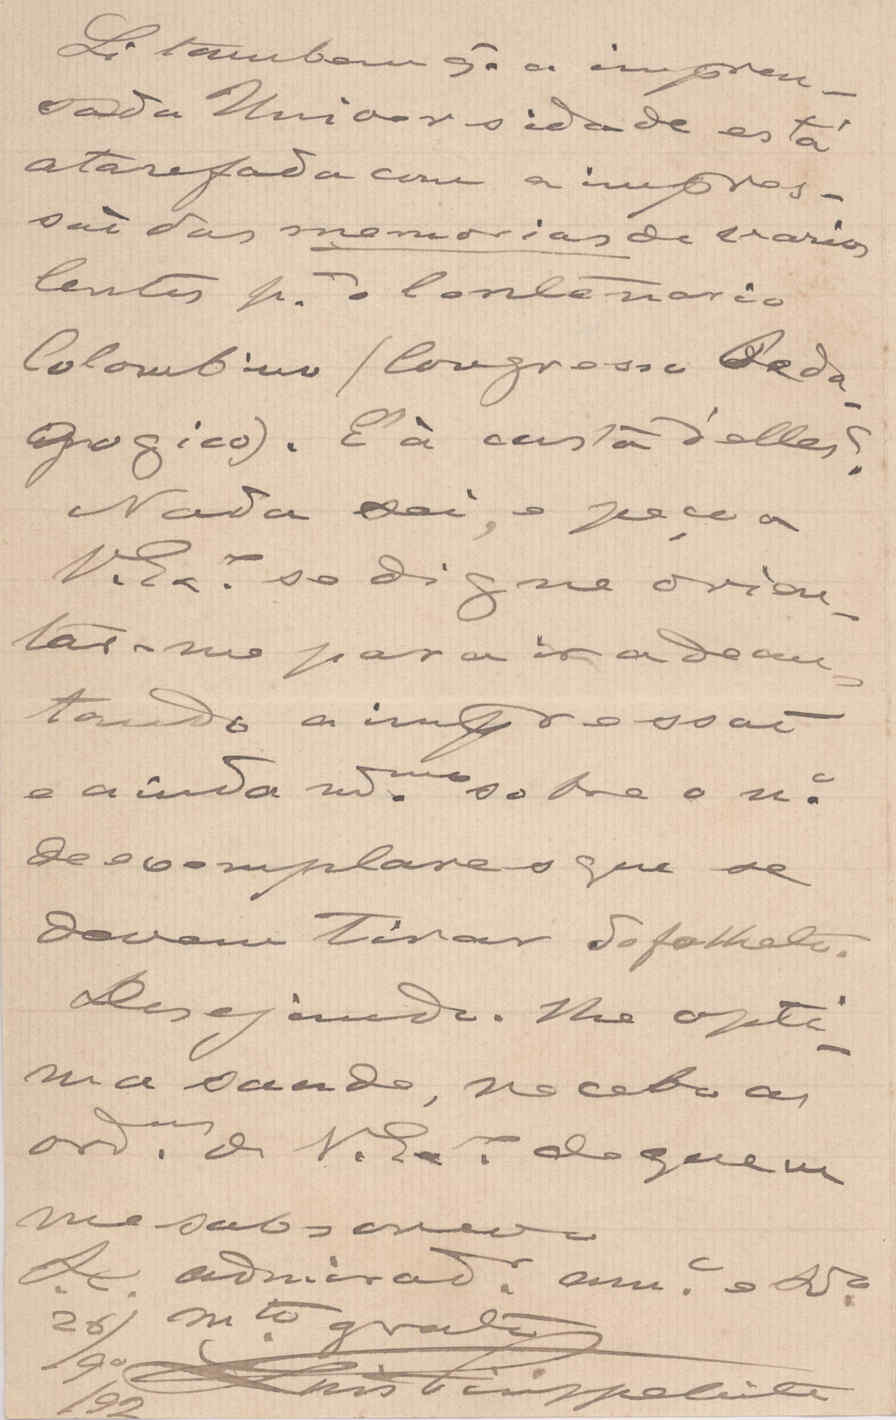 Li tambem q. a impren-
sa da Universidade está
atarefada com a impres-
saõ das memorias de varios
lentes p.ª o Centenario
Colombino (Congresso Peda-
gogico). É à custa d'elles?
Nada sei, e peço a
V. Ex.ª se digne orien-
tar-me para ir adean-
tando a impressaõ
e ainda m.mo sobre o n.º
de exemplares que se
devem tirar do folheto.
Desejando-lhe opti-
ma saude, recebo as
ord.ens de V. Ex.ª de quem
me subscrevo
admirad.r am.º e
26/ m.to grato
9º
/92 Luis Filippe Leite